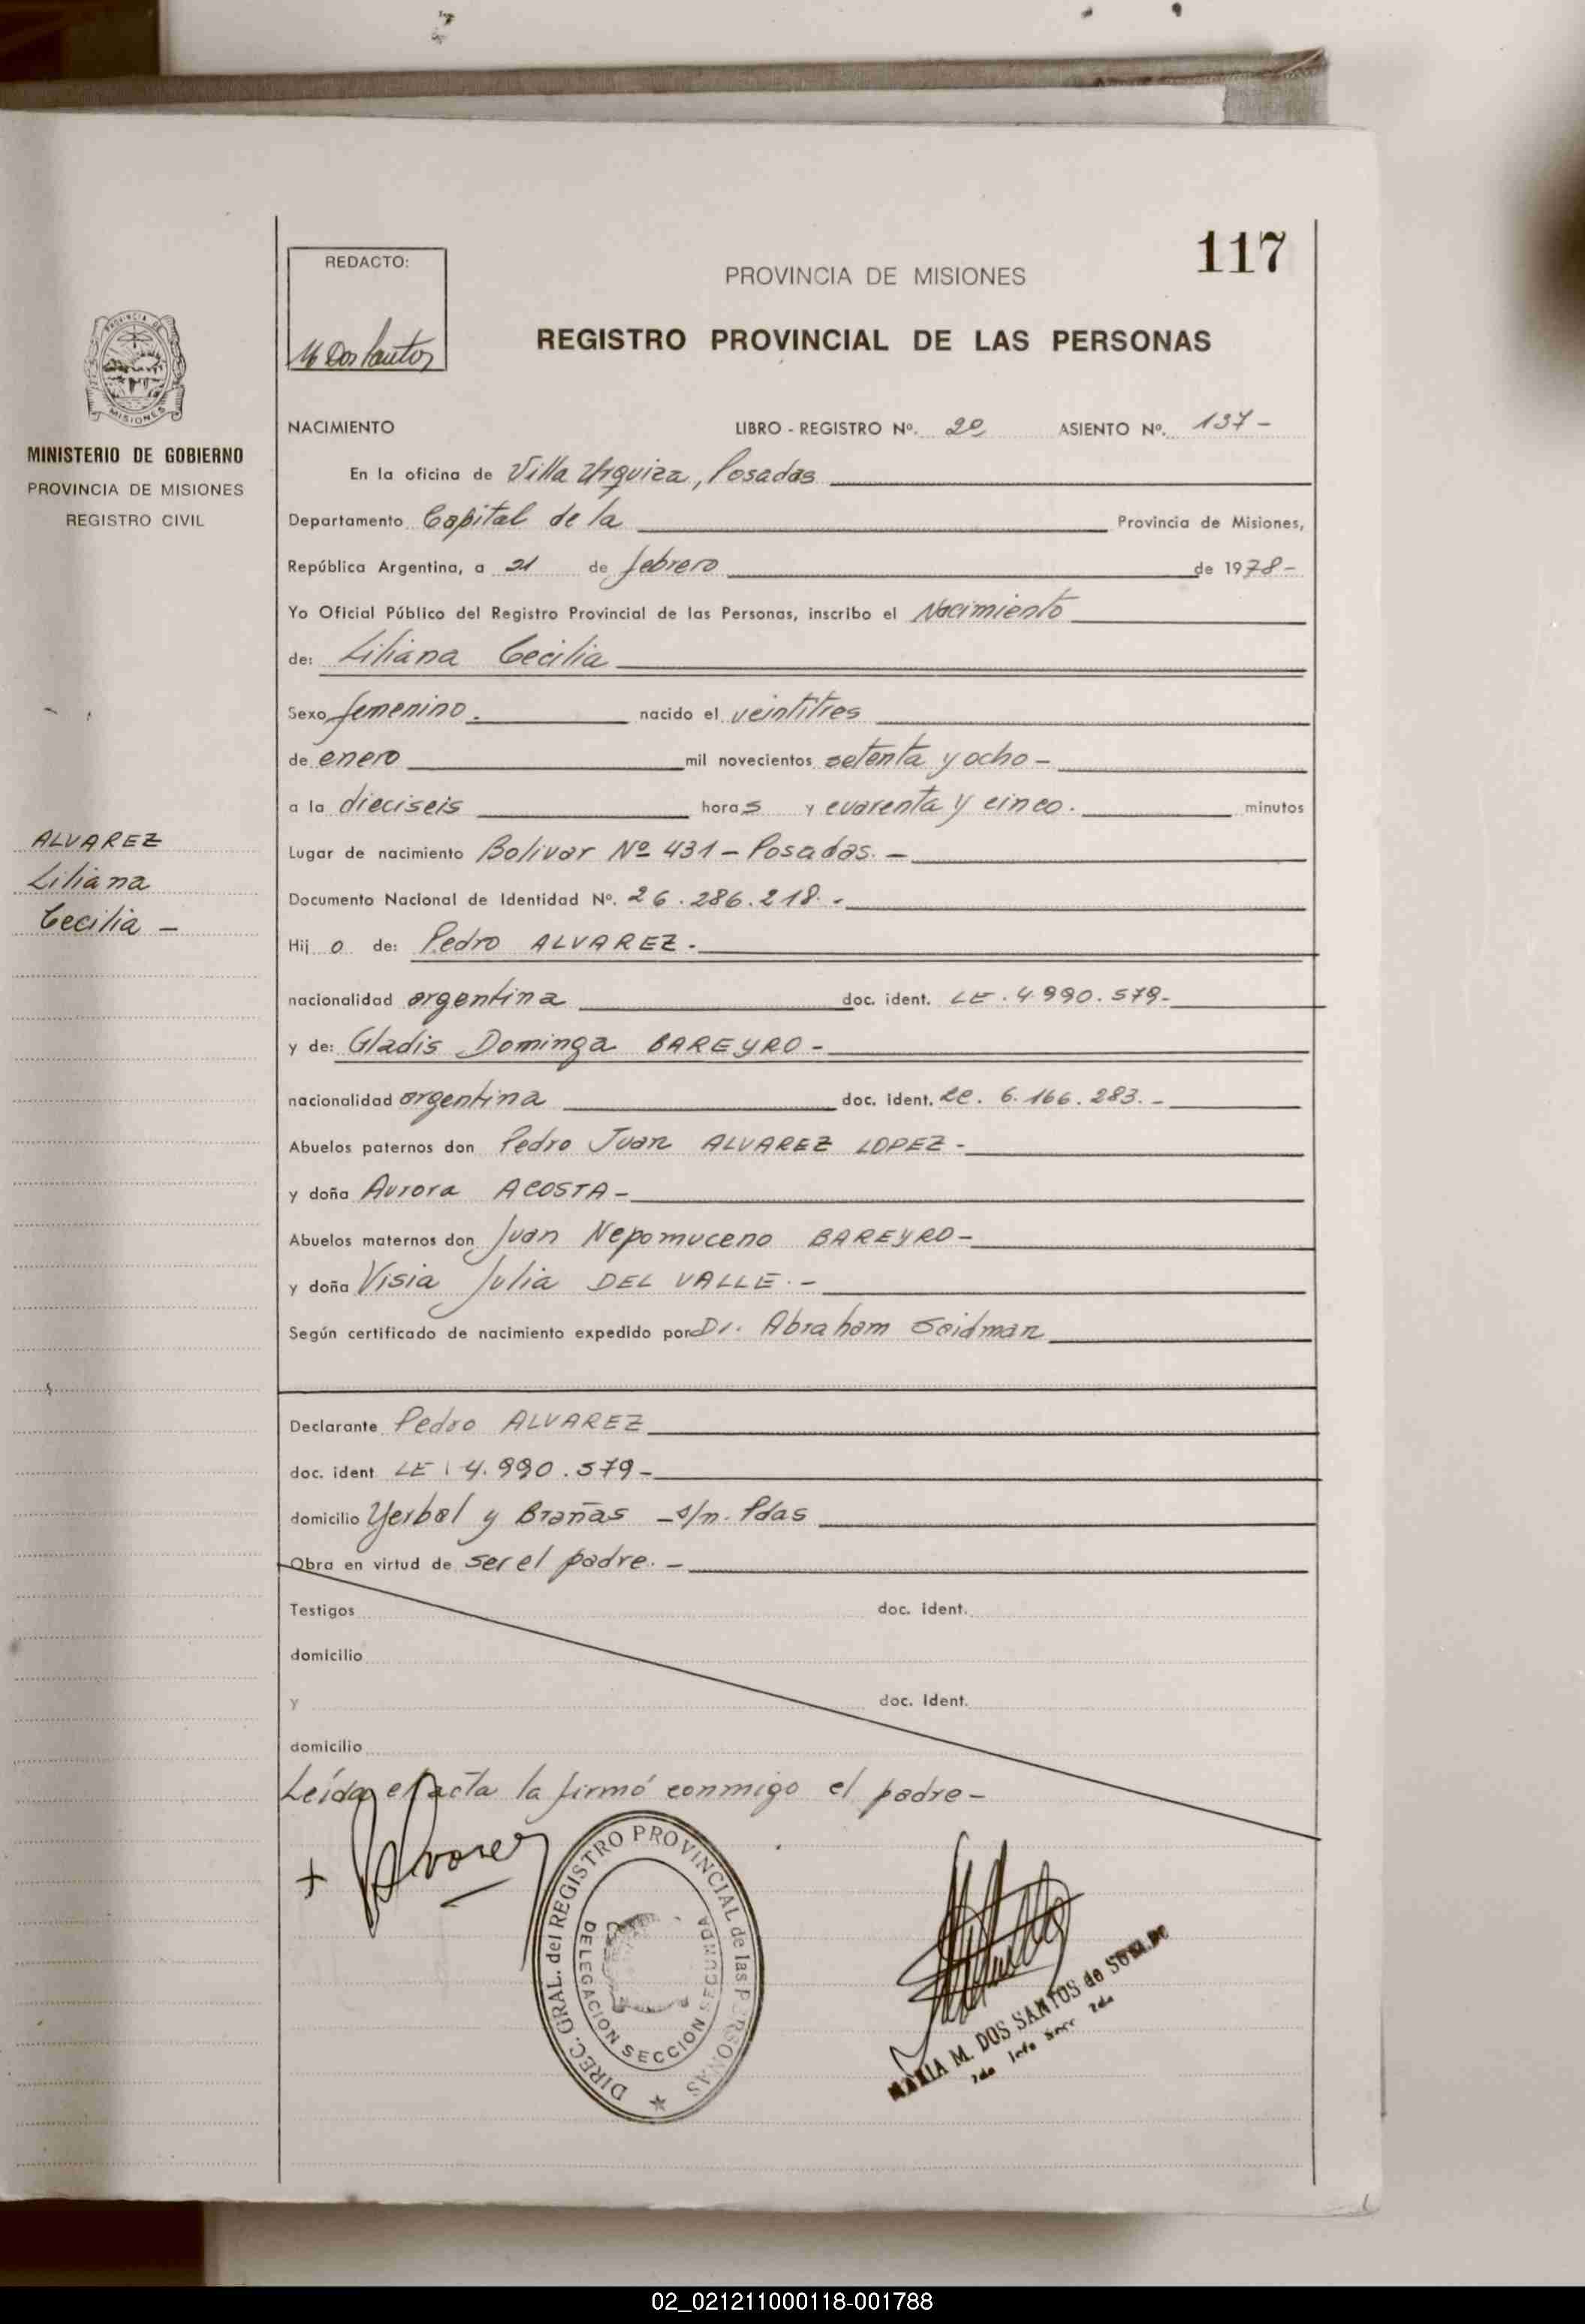 117
REDACTO:
M Dos Santos
PROVINCIA DE MISIONES
REGISTRO PROVINCIAL DE LAS PERSONAS
PROVINCIA DE
MISIONES
MINISTERIO DE GOBIERNO
PROVINCIA DE MISIONES
REGISTRO CIVIL
ALVAREZ
Liliana
Cecilia -
NACIMIENTO LIBRO - REGISTRO Nº. 20 ASIENTO Nº. 137 -
En la oficina de Villa Urquiza, Posadas
Departamento Capital de la Provincia de Misiones,
República Argentina, a 21 de febrero de 1978 -
Yo Oficial Público del Registro Provincial de las Personas, inscribo el Nacimiento
de: Liliana Cecilia
Sexo femenino. nacido el veintitres
de enero mil novecientos setenta y ocho -
a la dieciseis horas y cuarenta y cinco. minutos
Lugar de nacimiento Bolivar Nº 431 - Posadas. -
Documento Nacional de Identidad Nº. 26.286.218. -
Hij o de: Pedro ALVAREZ -
nacionalidad argentina doc. ident. LE. 4.990.579 -
y de: Gladis Dominga BAREYRO -
nacionalidad argentina doc. ident. LC. 6.166.283. -
Abuelos paternos don Pedro Juan ALVAREZ LOPEZ -
y doña Aurora ACOSTA -
Abuelos maternos don Juan Nepomuceno BAREYRO -
y doña Visia Julia DEL VALLE. -
Según certificado de nacimiento expedido por Dr. Abraham Seidman
Declarante Pedro ALVAREZ
doc. ident LE 4.990.579 -
domicilio Yerbal y Brañas - s/n. Pdas
Obra en virtud de ser el padre. -
Testigos doc. ident.
domicilio
y doc. Ident.
domicilio
Leída el acta la firmó conmigo el padre -
+ PAlvarez
DIREC. GRAL. del REGISTRO PROVINCIAL de las PERSONAS
DELEGACION SECCION SEGUNDA
MARIA M. DOS SANTOS de
02_021211000118-001788